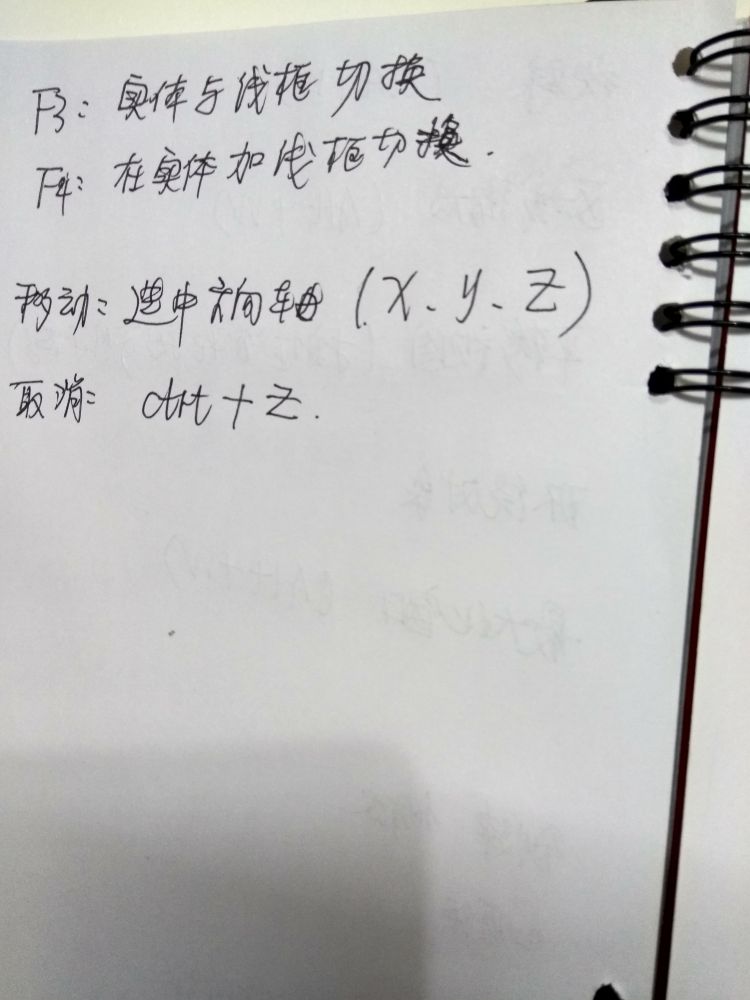 F3: 实体与线框切换
F4: 在实体加线框切换.
移动: 选中方向轴 (X、y、Z)
取消: ctrl+Z.